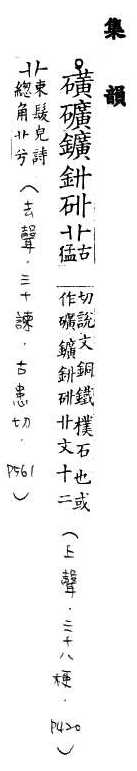 集韻
磺礦鑛鉡砃卝古猛
切說文銅鐵樸石也或
作礦鑛鉡砃卝文十二
(上聲．三十八梗． P420)
卝束髮皃詩
總角卝兮
(去聲．三十諫．古患切． P561)